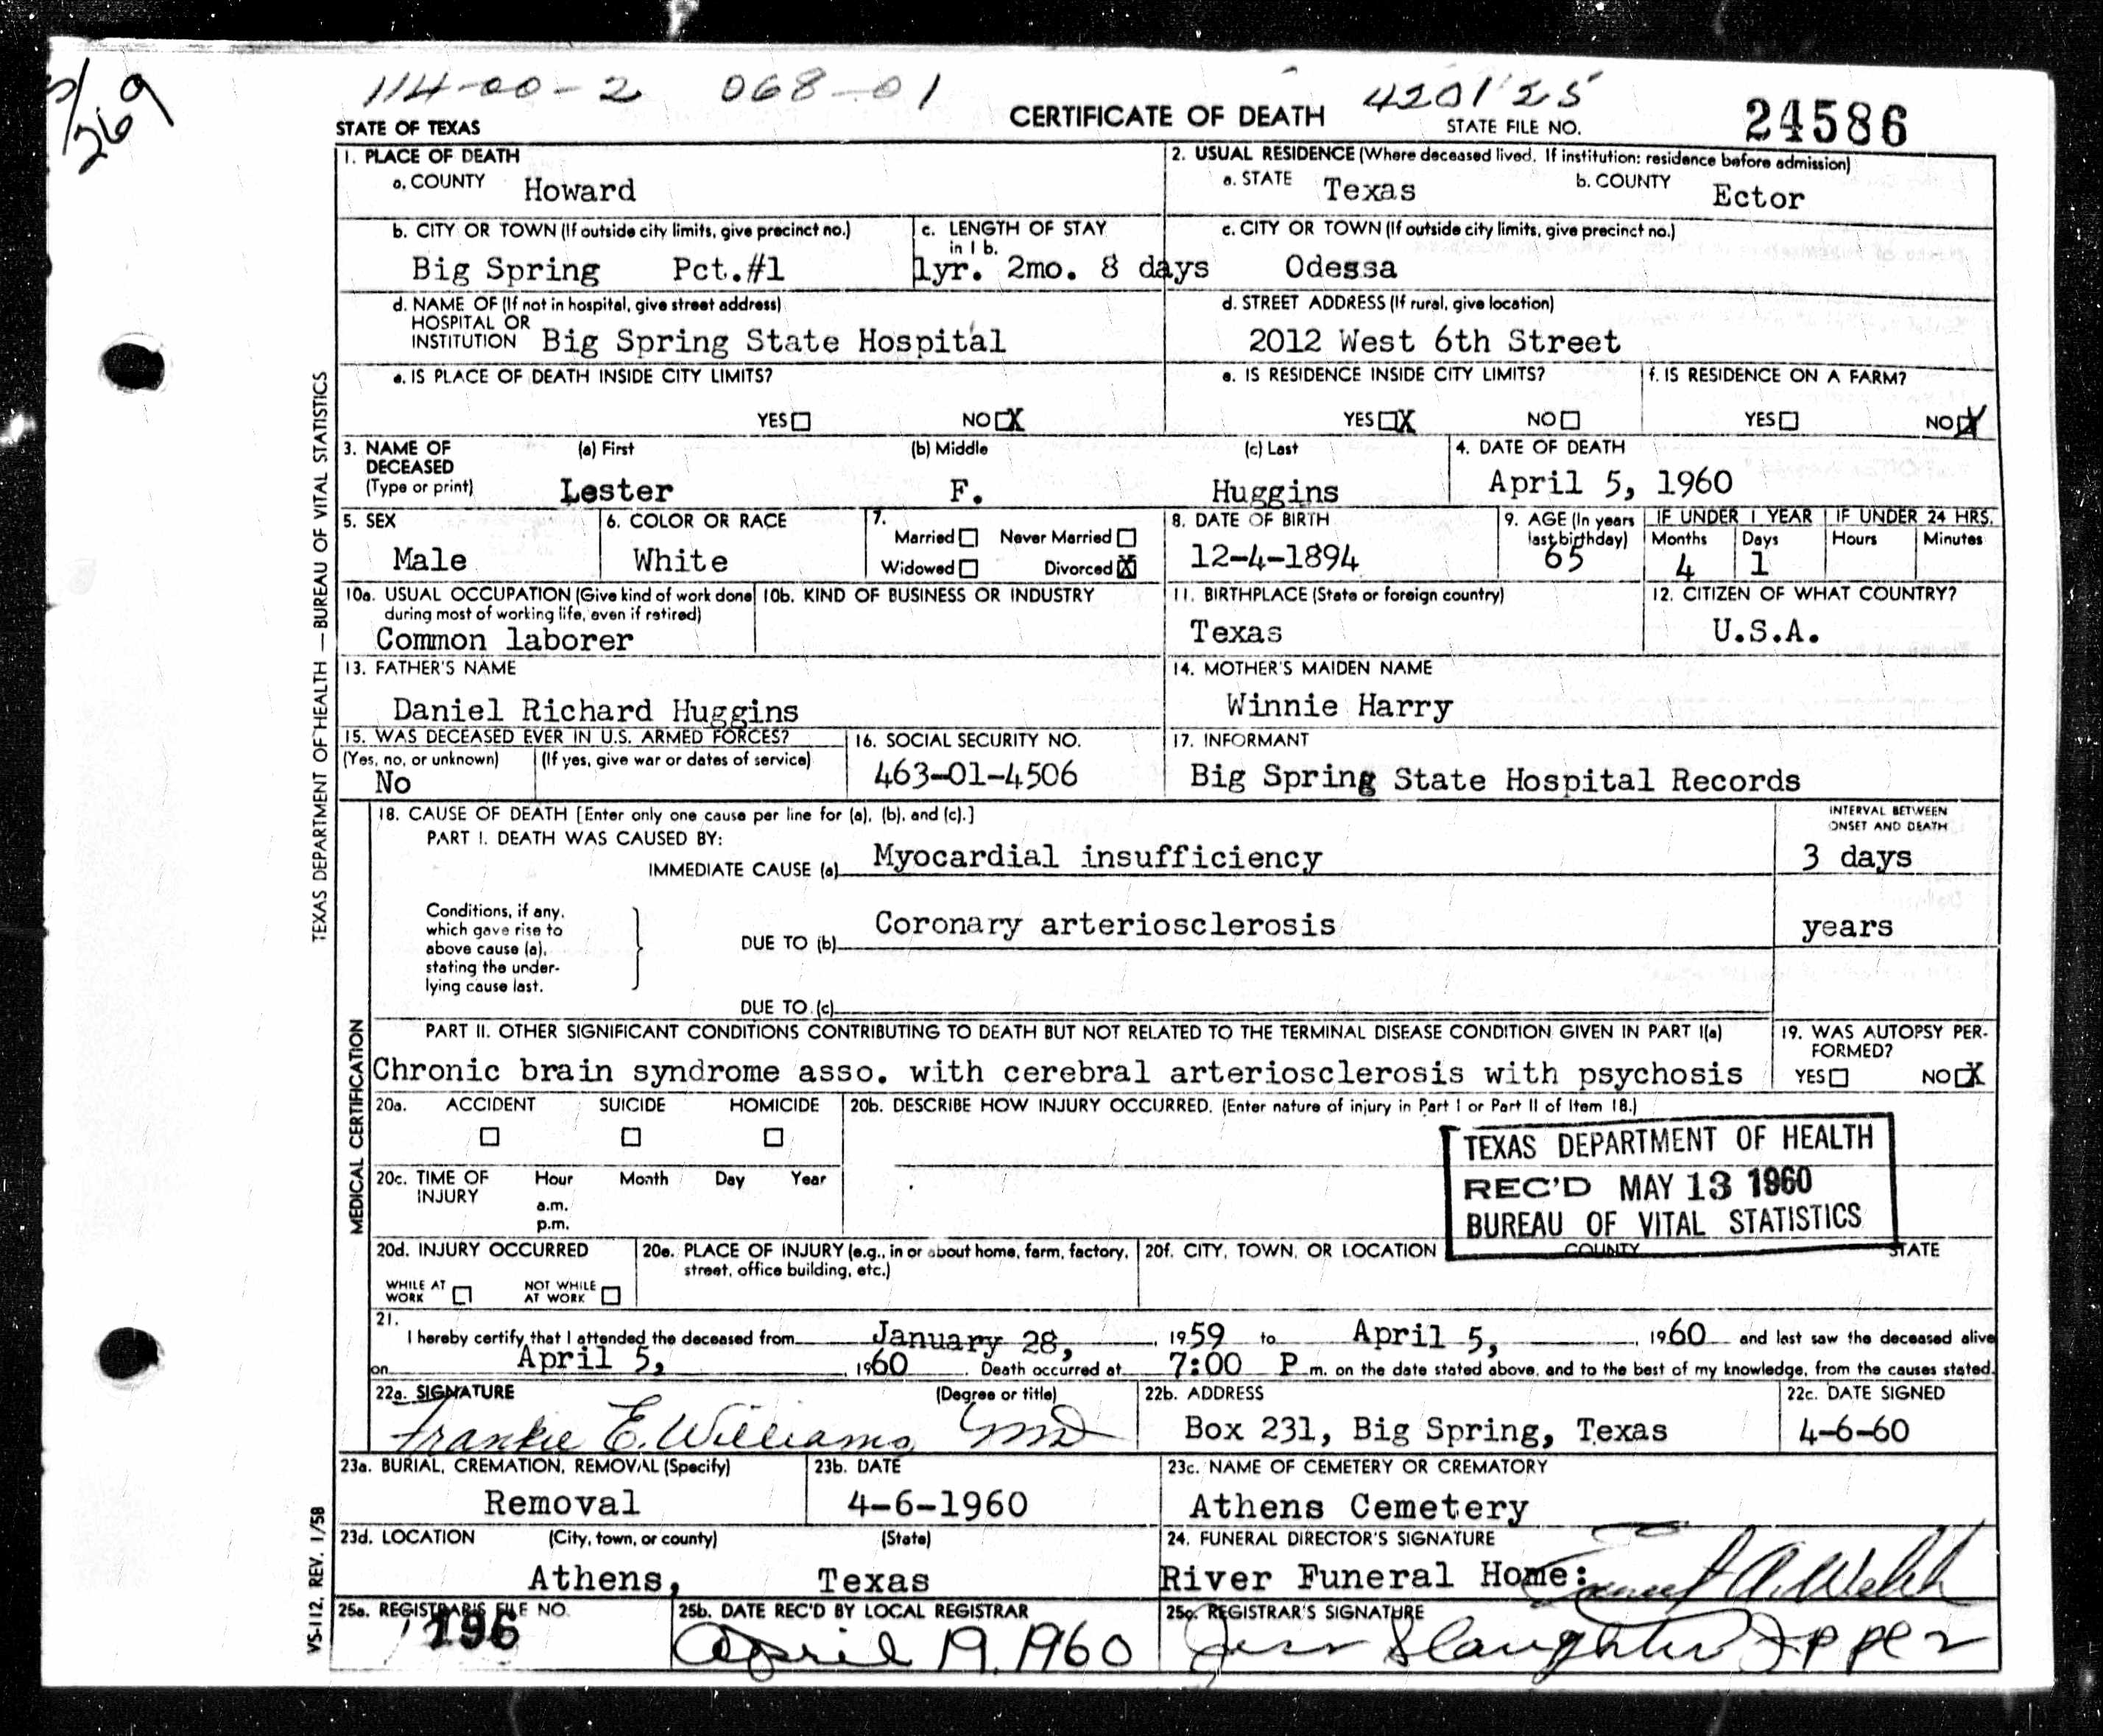 114-00-2 068-01 4201 25
269
STATE OF TEXAS CERTIFICATE OF DEATH STATE FILE NO. 24586
1. PLACE OF DEATH
a. COUNTY Howard
2. USUAL RESIDENCE (Where deceased lived. If institution: residence before admission)
a. STATE Texas b. COUNTY Ector
b. CITY OR TOWN (If outside city limits, give precinct no.)
Big Spring Pct.#1
c. LENGTH OF STAY
in 1 b.
1yr. 2mo. 8 days
c. CITY OR TOWN (If outside city limits, give precinct no.)
Odessa
d. NAME OF (If not in hospital, give street address)
HOSPITAL OR
INSTITUTION Big Spring State Hospital
d. STREET ADDRESS (If rural, give location)
2012 West 6th Street
e. IS PLACE OF DEATH INSIDE CITY LIMITS?
YES☐ NO☒
e. IS RESIDENCE INSIDE CITY LIMITS?
YES☒ NO☐
f. IS RESIDENCE ON A FARM?
YES☐ NO☒
3. NAME OF
DECEASED
(Type or print)
(a) First (b) Middle (c) Last
Lester F. Huggins
4. DATE OF DEATH
April 5, 1960
5. SEX
Male
6. COLOR OR RACE
White
7.
Married☐ Never Married☐
Widowed☐ Divorced☒
8. DATE OF BIRTH
12-4-1894
9. AGE (In years
last birthday)
65
IF UNDER 1 YEAR
Months Days
4 1
IF UNDER 24 HRS.
Hours Minutes
10a. USUAL OCCUPATION (Give kind of work done
during most of working life, even if retired)
Common laborer
10b. KIND OF BUSINESS OR INDUSTRY
11. BIRTHPLACE (State or foreign country)
Texas
12. CITIZEN OF WHAT COUNTRY?
U.S.A.
13. FATHER'S NAME
Daniel Richard Huggins
14. MOTHER'S MAIDEN NAME
Winnie Harry
15. WAS DECEASED EVER IN U.S. ARMED FORCES?
(Yes, no, or unknown) (If yes, give war or dates of service)
No
16. SOCIAL SECURITY NO.
463-01-4506
17. INFORMANT
Big Spring State Hospital Records
TEXAS DEPARTMENT OF HEALTH — BUREAU OF VITAL STATISTICS
MEDICAL CERTIFICATION
18. CAUSE OF DEATH [Enter only one cause per line for (a), (b), and (c).]
PART I. DEATH WAS CAUSED BY:
IMMEDIATE CAUSE (a) Myocardial insufficiency
INTERVAL BETWEEN
ONSET AND DEATH
3 days
Conditions, if any,
which gave rise to
above cause (a),
stating the under-
lying cause last.
DUE TO (b) Coronary arteriosclerosis
years
DUE TO (c)
PART II. OTHER SIGNIFICANT CONDITIONS CONTRIBUTING TO DEATH BUT NOT RELATED TO THE TERMINAL DISEASE CONDITION GIVEN IN PART I(a)
Chronic brain syndrome asso. with cerebral arteriosclerosis with psychosis
19. WAS AUTOPSY PER-
FORMED?
YES☐ NO☒
20a. ACCIDENT SUICIDE HOMICIDE
☐ ☐ ☐
20b. DESCRIBE HOW INJURY OCCURRED. (Enter nature of injury in Part I or Part II of Item 18.)
20c. TIME OF
INJURY
Hour Month Day Year
a.m.
p.m.
TEXAS DEPARTMENT OF HEALTH
REC'D MAY 13 1960
BUREAU OF VITAL STATISTICS
20d. INJURY OCCURRED
WHILE AT
WORK ☐
NOT WHILE
AT WORK ☐
20e. PLACE OF INJURY (e.g., in or about home, farm, factory,
street, office building, etc.)
20f. CITY, TOWN, OR LOCATION COUNTY STATE
21.
I hereby certify that I attended the deceased from January 28, 1959 to April 5, 1960 and last saw the deceased alive
on April 5, 1960 Death occurred at 7:00 P m. on the date stated above, and to the best of my knowledge, from the causes stated.
22a. SIGNATURE (Degree or title)
Frankie E. Williams MD
22b. ADDRESS
Box 231, Big Spring, Texas
22c. DATE SIGNED
4-6-60
23a. BURIAL, CREMATION, REMOVAL (Specify)
Removal
23b. DATE
4-6-1960
23c. NAME OF CEMETERY OR CREMATORY
Athens Cemetery
23d. LOCATION (City, town, or county) (State)
Athens, Texas
24. FUNERAL DIRECTOR'S SIGNATURE
River Funeral Home: A. Welch
25a. REGISTRAR'S FILE NO.
196
25b. DATE REC'D BY LOCAL REGISTRAR
April 19, 1960
25c. REGISTRAR'S SIGNATURE
Jess Slaughter
VS-112, REV. 1/58